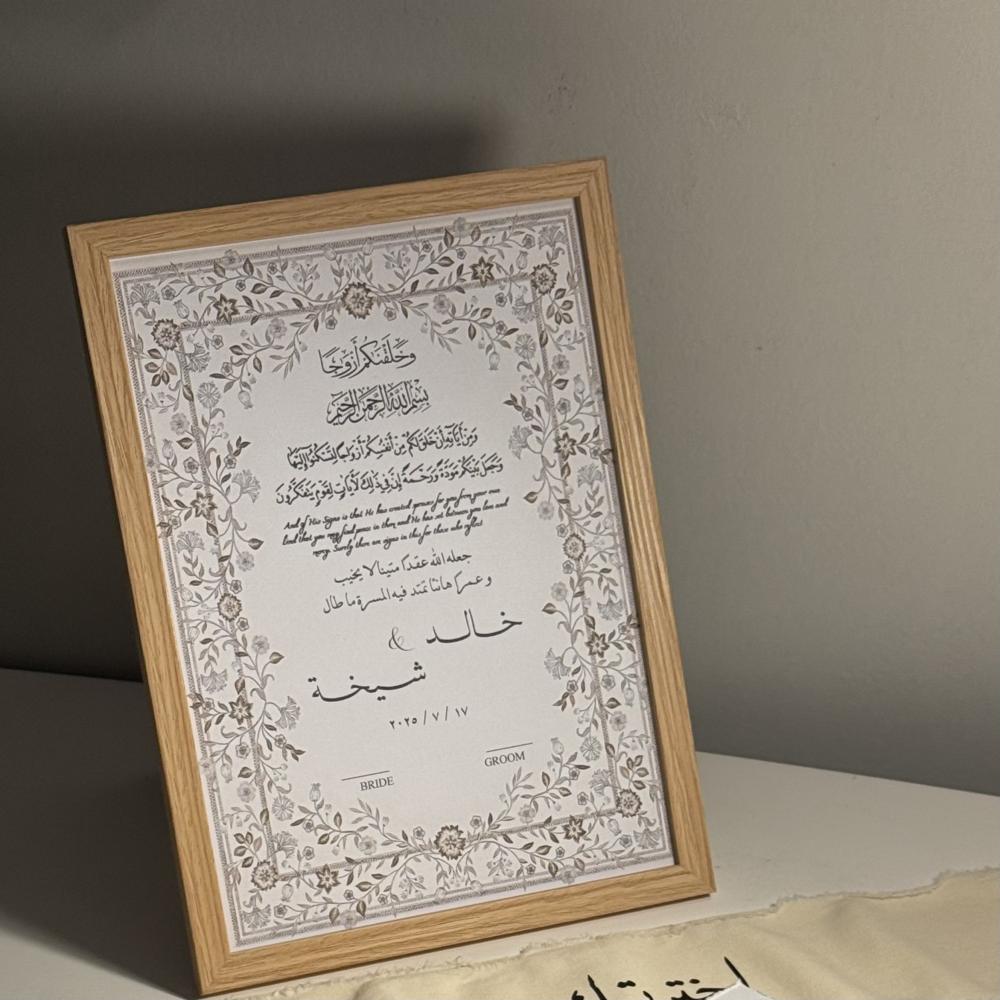 وَخَلَقْنَاكُمْ أَزْوَاجًا
بِسْمِ اللَّهِ الرَّحْمَنِ الرَّحِيمِ
وَمِنْ آيَاتِهِ أَنْ خَلَقَ لَكُمْ مِنْ أَنْفُسِكُمْ أَزْوَاجًا لِتَسْكُنُوا إِلَيْهَا
وَجَعَلَ بَيْنَكُمْ مَوَدَّةً وَرَحْمَةً إِنَّ فِي ذَلِكَ لَآيَاتٍ لِقَوْمٍ يَتَفَكَّرُونَ
And of His Signs is that He has created spouses for you from your own
kind that you may find peace in them and He has set between you love and
mercy. Surely there are signs in this for those who reflect
جعله الله عقدًا متينا لا يخيب
وعمرًا هانئا تمتد فيه المسرة ما طال
خالد &
شيخة
١٧ / ٧ / ٢٠٢٥
GROOM
BRIDE
اخترتك